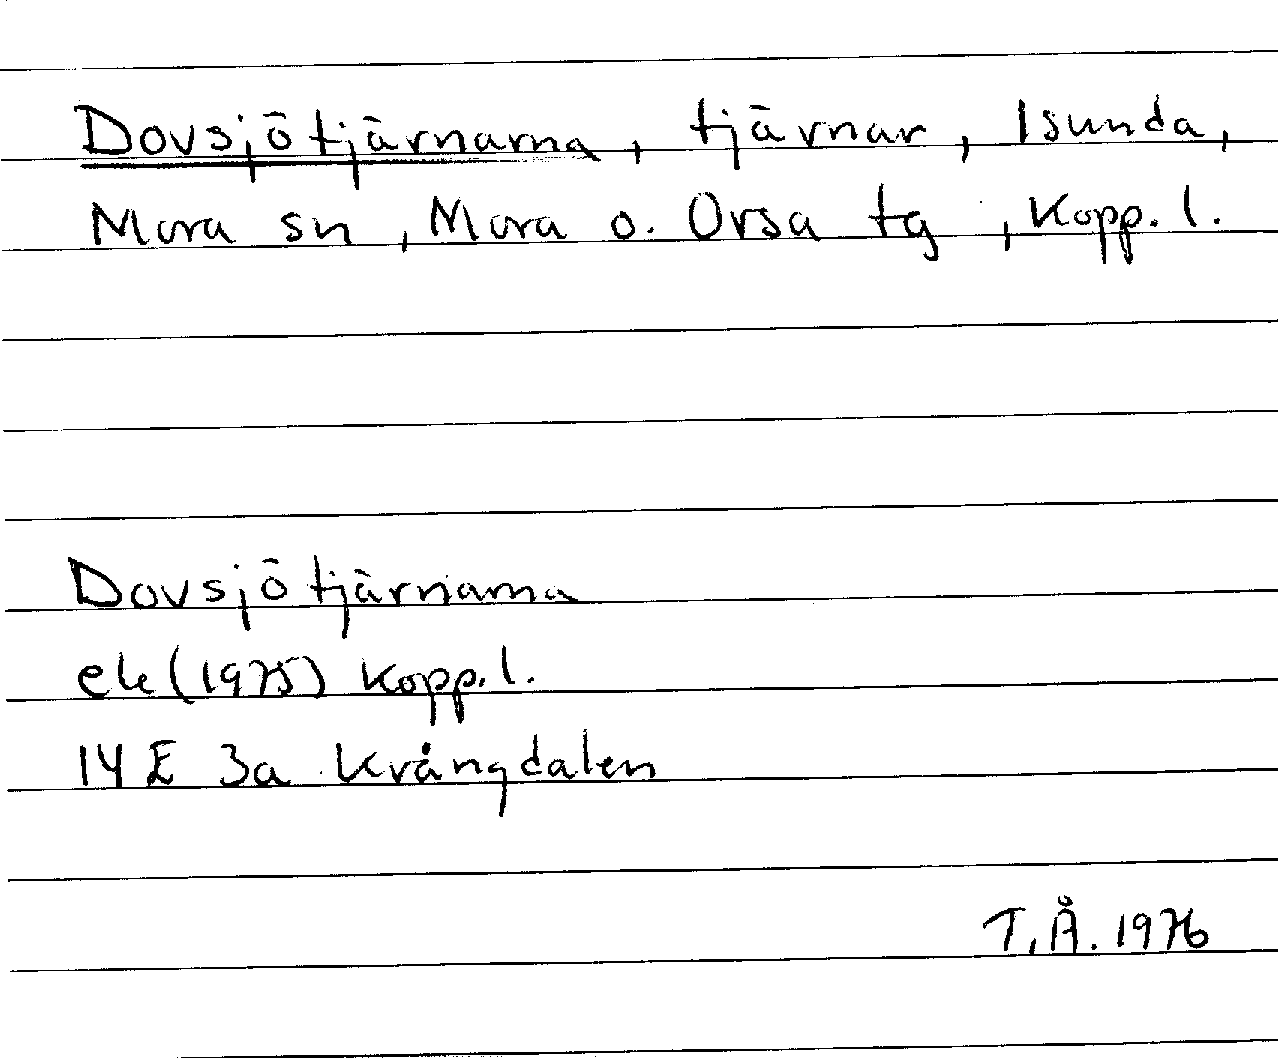 Dovsjötjärnarna, tjärnar, Isunda,
Mora sn, Mora o. Orsa tg, Kopp. l.
Dovsjötjärnarna
ek (1975) Kopp. l.
14 E 3a Kvångdalen
T. Å. 1976